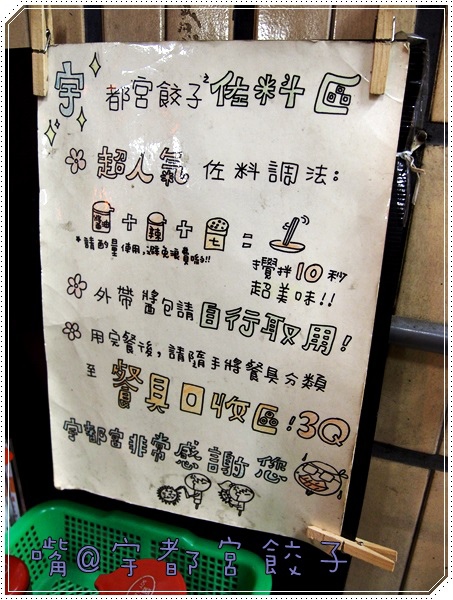 宇都宮餃子佐料區
超人氣 佐料調法:
醬油 + 辣 + 七 =
*請酌量使用,避免浪費喲!!
攪拌10秒
超美味!!
外帶醬包請自行取用!
用完餐後,請隨手將餐具分類
至 餐具回收區!3Q
宇都宮非常感謝您
嘴@宇都宮餃子